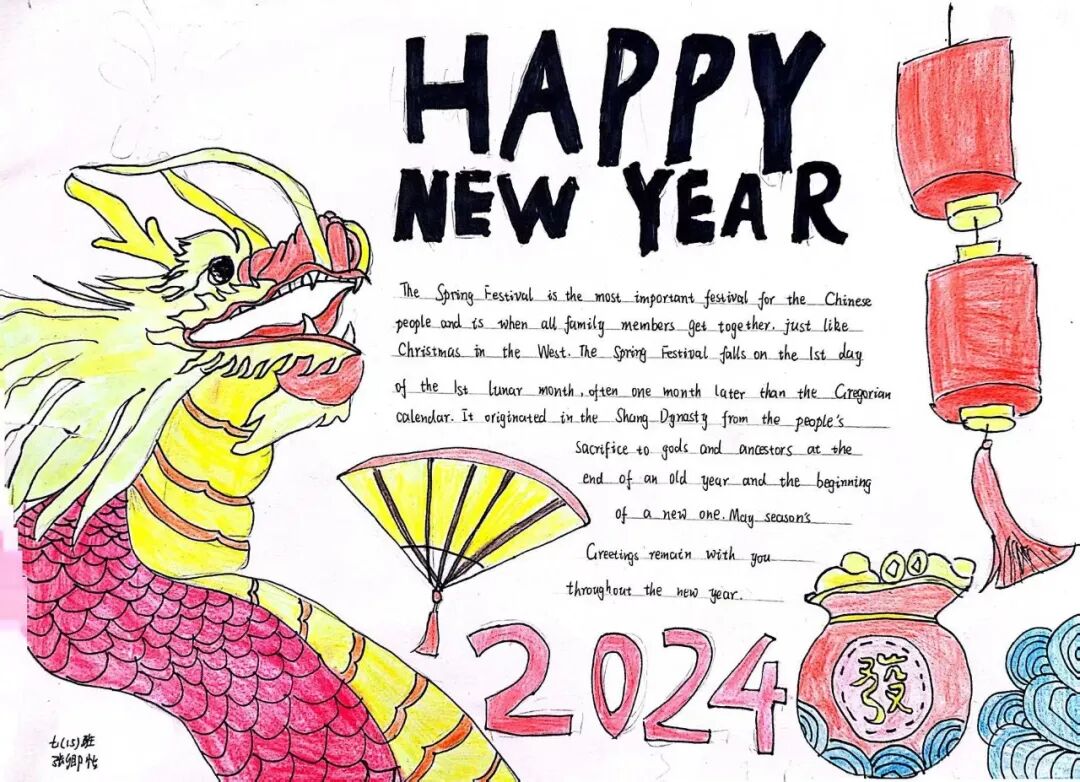 HAPPY
NEW YEAR
The Spring Festival is the most important festival for the Chinese
people and is when all family members get together. just like
Christmas in the West. The Spring Festival falls on the 1st day
of the 1st lunar month, often one month later than the Gregorian
calendar. It originated in the Shang Dynasty from the people's
sacrifice to gods and ancestors at the
end of an old year and the beginning
of a new one. May season's
Greetings remain with you
throughout the new year.
2024
發
七(15)班
张卿怡